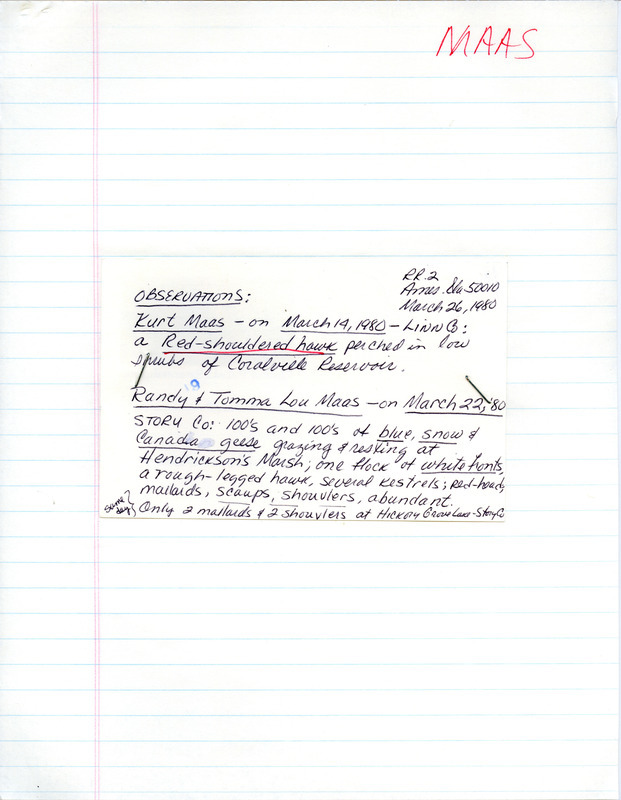 MAAS
RR.2
Ames. Ia 50010
March 26, 1980
OBSERVATIONS:
Kurt Maas - on March 19, 1980 - LINN Co:
a Red-shouldered hawk perched in low
shrubs of Coralville Reservoir.
19
Randy & Tomma Lou Maas - on March 22, '80
STORY Co: 100's and 100's of blue, snow &
Canada geese grazing & resting at
Hendrickson's Marsh; one flock of white fronts,
a rough-legged hawk, several kestrels; red-heads,
mallards, scaups, shouvlers, abundant.
same day } Only 2 mallards & 2 shouvlers at Hickory Grove Lake - Story Co